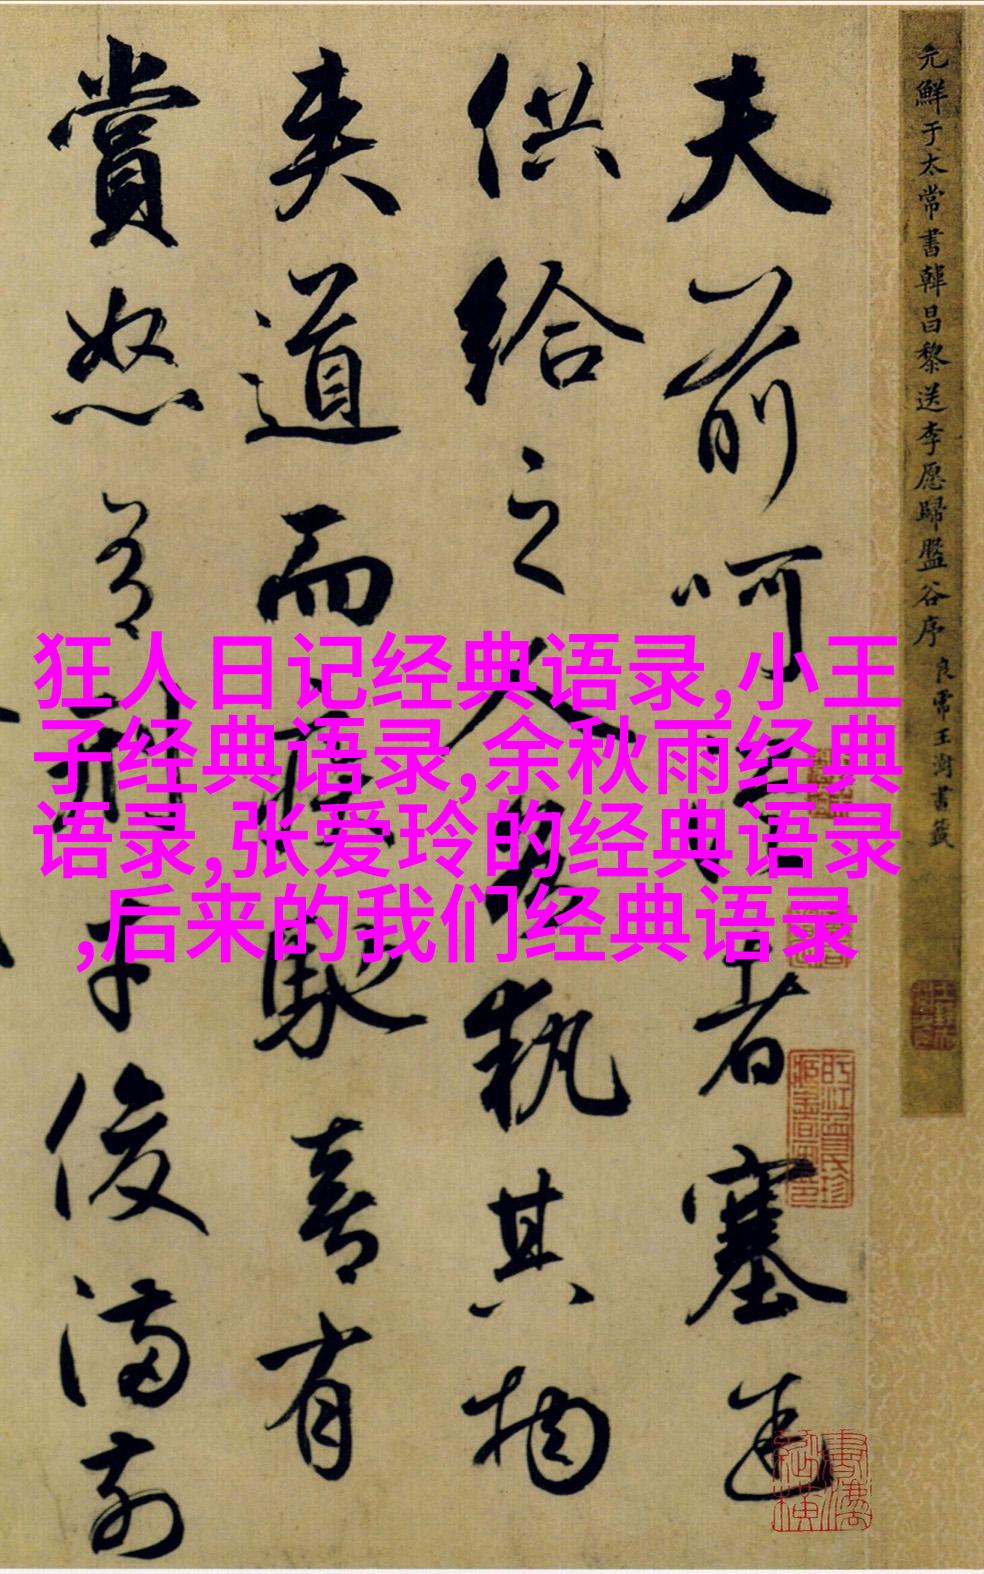 元鮮于太常書韓昌黎送李愿歸盤谷序 良常王澍書籤
夫前呵從者塞途
供給之人各執其物
夾道而疾馳喜有
賞怒有刑才俊滿前
狂人日记经典语录,小王
子经典语录,余秋雨经典
语录,张爱玲的经典语录
,后来的我们经典语录